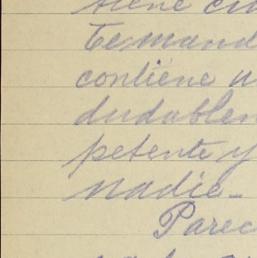 temand
contiene u
dudablem
petente y
nadie_
Parec